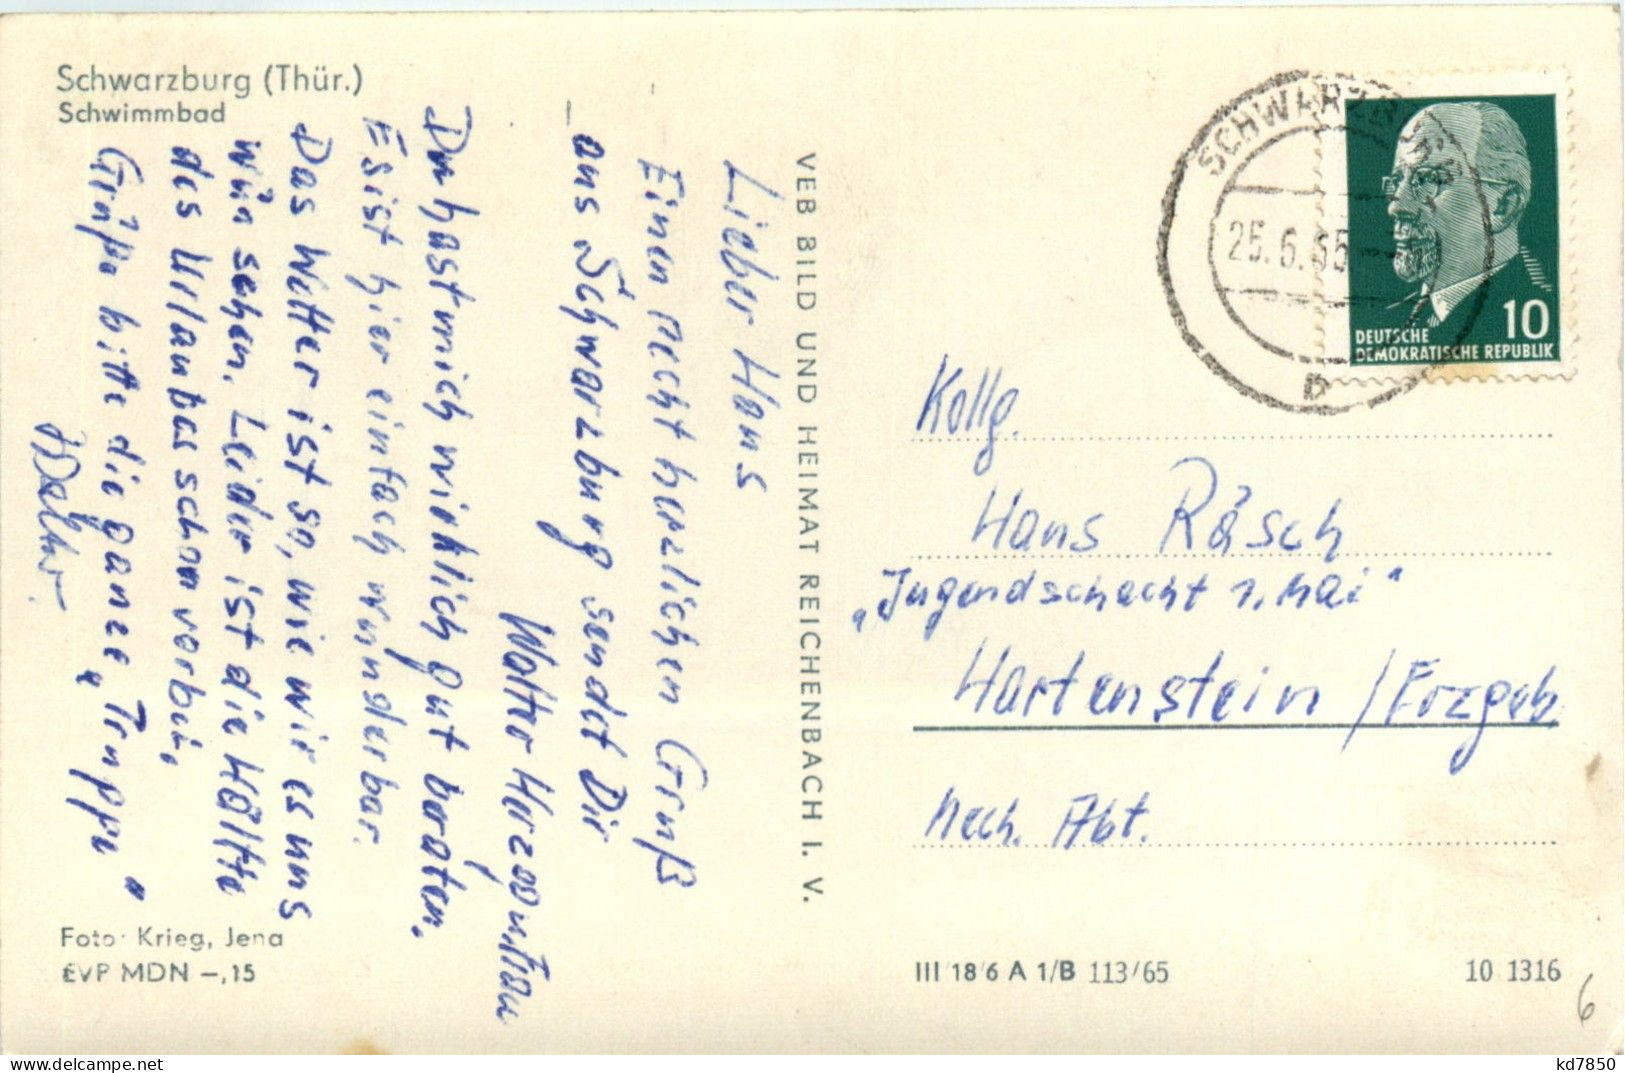 Schwarzburg (Thür.)
Schwimmbad
Lieber Hans
Einen recht herzlichen Gruß
aus Schwarzburg sendet Dir
Walter Herzog u. Frau
Du hast mich wirklich gut beraten.
Es ist hier einfach wunderbar.
Das Wetter ist so, wie wir es uns
wünschen. Leider ist die Hälfte
des Urlaubas schon vorbei.
Grüße bitte die ganze „Truppe"
Walter.
Foto: Krieg, Jena
EVP MDN –,15
VEB BILD UND HEIMAT REICHENBACH I. V.
SCHWARZBURG
25.6.65
b
10
DEUTSCHE
DEMOKRATISCHE REPUBLIK
Kollg.
Hans Räsch
„Jugendschacht 1. Mai"
Hartenstein / Erzgeb
Mech. Abt.
III/18/6 A 1/B 113/65
10 1316
6
www.delcampe.net
kd7850